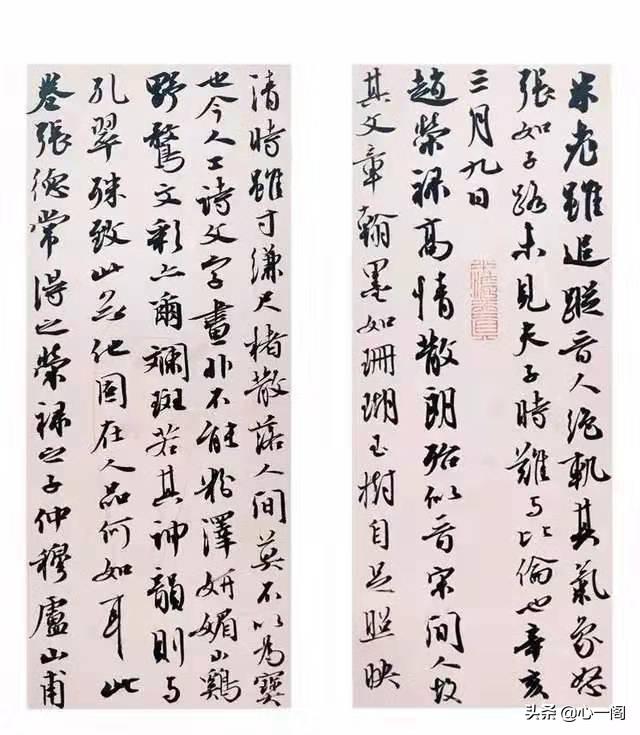 米老雖追蹤晉人絶軌其氣象怒
張如子路未見夫子時難与比倫也辛亥
三月九日
趙榮祿高情散朗殆似晉宋間人故
其文章翰墨如珊瑚玉樹自足照映
清時雖寸縑尺楮散落人間莫不以為寶
也今人工詩文字畫非不能粉澤妍媚山鷄
野鶩文彩亦爾斕斑若其神韻則与
孔翠殊致此無他固在人品何如耳此
卷張德常得之榮祿之子仲穆盧山甫
头条 @心一阁